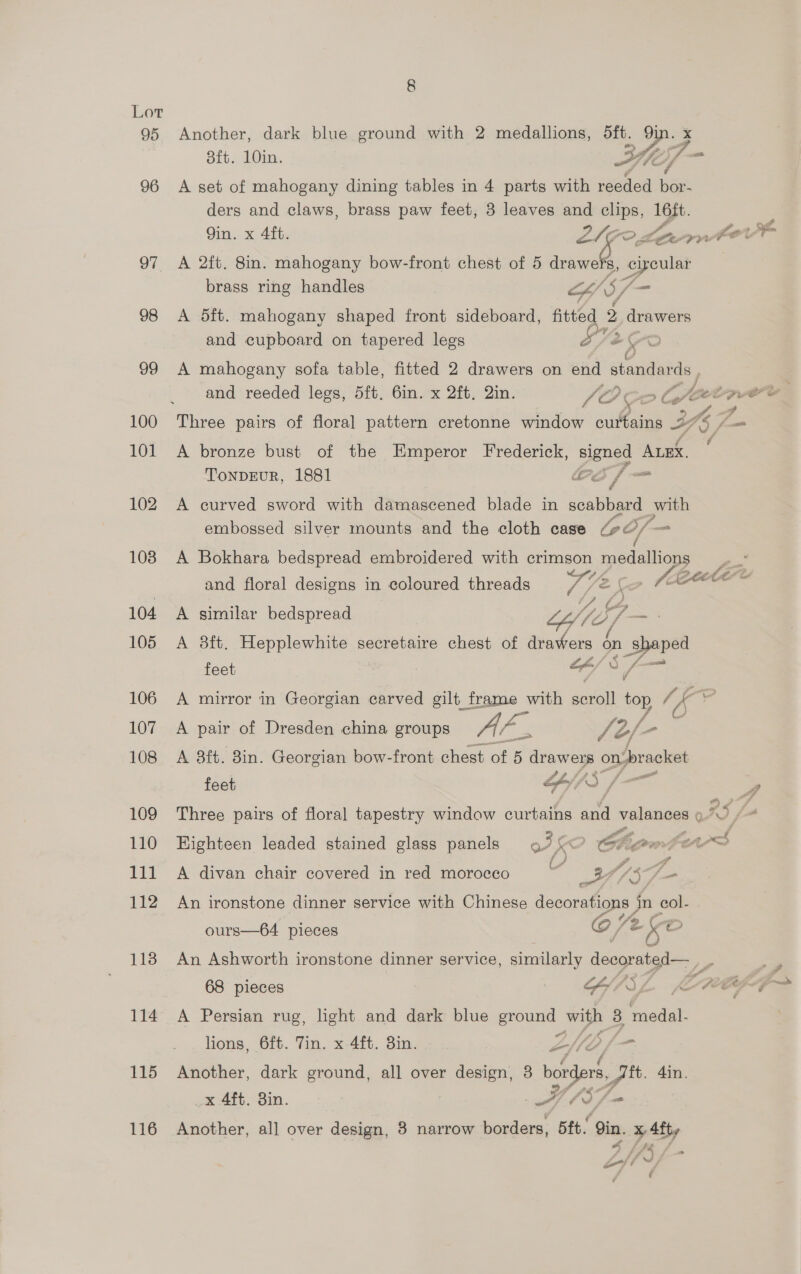 8
Lot
95 Another, dark blue ground with 2 medallions, 5ft. 9in. x
3ft. 10in.
96 A set of mahogany dining tables in 4 parts with reeded bor-
ders and claws, brass paw feet, 3 leaves and clips, 16ft.
9in. x 4ft.
97 A 2ft. 8in. mahogany bow-front chest of 5 drawers, circular
brass ring handles
98 A 5ft. mahogany shaped front sideboard, fitted 2 drawers
and cupboard on tapered legs
99 A mahogany sofa table, fitted 2 drawers on end standards
and reeded legs, 5ft. 6in. x 2ft. 2in.
100 Three pairs of floral pattern cretonne window curtains
101 A bronze bust of the Emperor Frederick, signed Alex.
Tondeur, 1881
102 A curved sword with damascened blade in scabbard with
embossed silver mounts and the cloth case
103 A Bokhara bedspread embroidered with crimson medallions
and floral designs in coloured threads
104 A similar bedspread
105 A 3ft. Hepplewhite secretaire chest of drawers on shaped
feet
106 A mirror in Georgian carved gilt frame with scroll top
107 A pair of Dresden china groups
108 A 3ft. 3in. Georgian bow-front chest of 5 drawers on bracket
feet
109 Three pairs of floral tapestry window curtains and valances
110 Eighteen leaded stained glass panels
111 A divan chair covered in red morocco
112 An ironstone dinner service with Chinese decorations in col-
ours—64 pieces
113 An Ashworth ironstone dinner service, similarly decorated—
68 pieces
114 A Persian rug, light and dark blue ground with 3 medal-
lions, 6ft. 7in. x 4ft. 3in.
115 Another, dark ground, all over design, 3 borders, 7ft. 4in.
x 4ft. 3in.
116 Another, all over design, 3 narrow borders, 5ft. 9in. x 4ft,